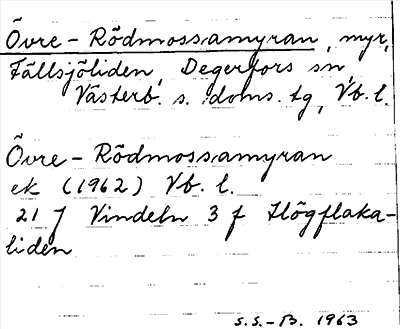 Övre-Rödmossamyran, myr,
Fällsjöliden, Degerfors sn,
Västerb. s. doms. tg, Vb. l.
Övre-Rödmossamyran
ek (1962) Vb. l.
21 J Vindeln 3 f Högflaka-
liden
S.S.-B. 1963